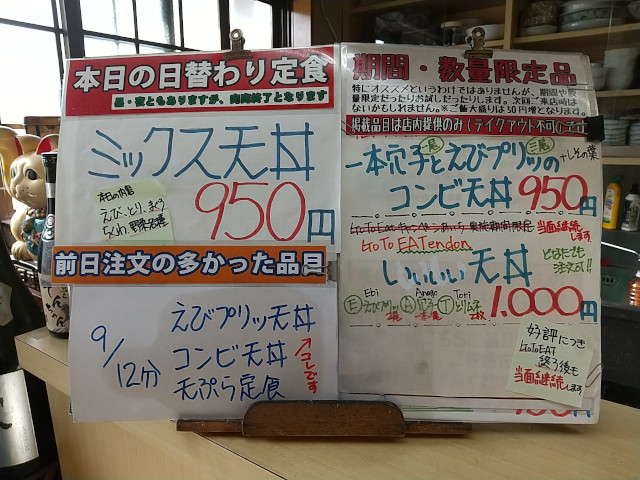 本日の日替わり定食
昼・夜ともありますが、完売終了となります
ミックス天丼
950円
本日の内容
えび、とり、まぐろ
ちくわ、野菜各種
前日注文の多かった品目
9/12分
えびプリッ天丼
コンビ天丼
天ぷら定食
←コレです
期間・数量限定品
特にオススメというわけではありませんが、期間や数
量限定だったりお試しだったりします。次回ご来店時は
ないかもしれません。※ご飯大盛りは50円増となります。
掲載品目は店内提供のみ(テイクアウト不可
一本穴子とえびプリッの
コンビ天丼 950円
+しその葉
当面継続
します
GoTo EATendon
いいいい天丼
とはなせ
注文可!!
1.000円
Ebi
Ⓔえびプリッ
Anago
Ⓐ穴子
Tori
Ⓣとりムネ
2枚
好評につき
GoToEAT
終了後も
当面継続します